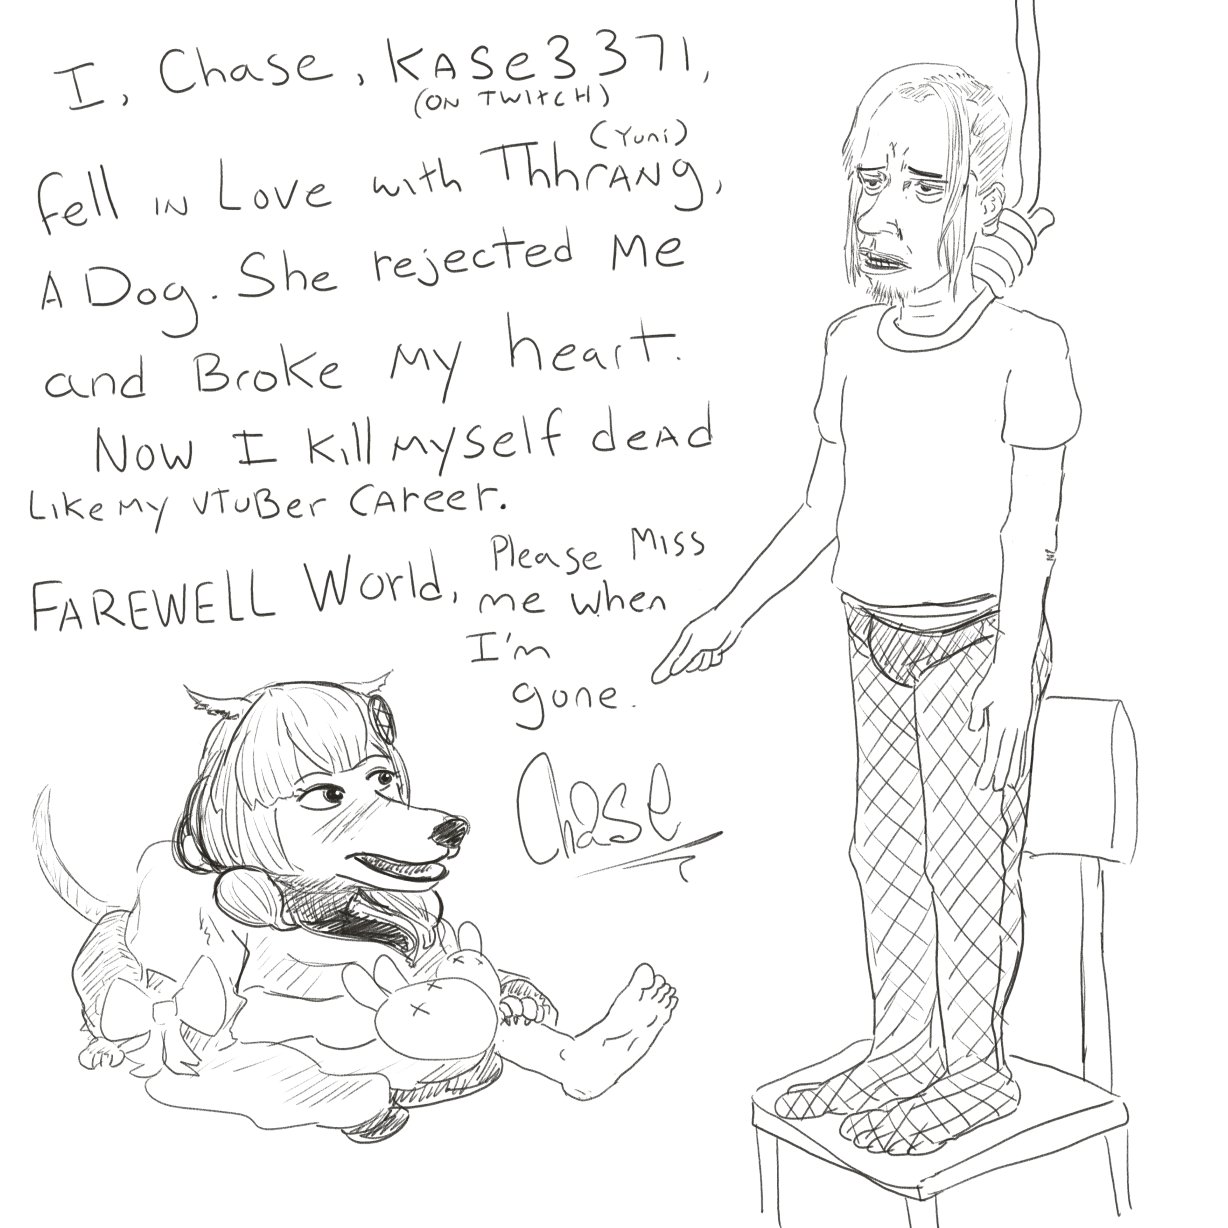 I, Chase, KASe3371,
(ON TWITCH)
(Yuni)
fell IN Love with ThhrANg,
A Dog. She rejected Me
and Broke My heart.
Now I Kill Myself deAd
Like My VTuBer CAreer.
FAREWELL World, Please Miss
me when
I'm
gone.
Chase